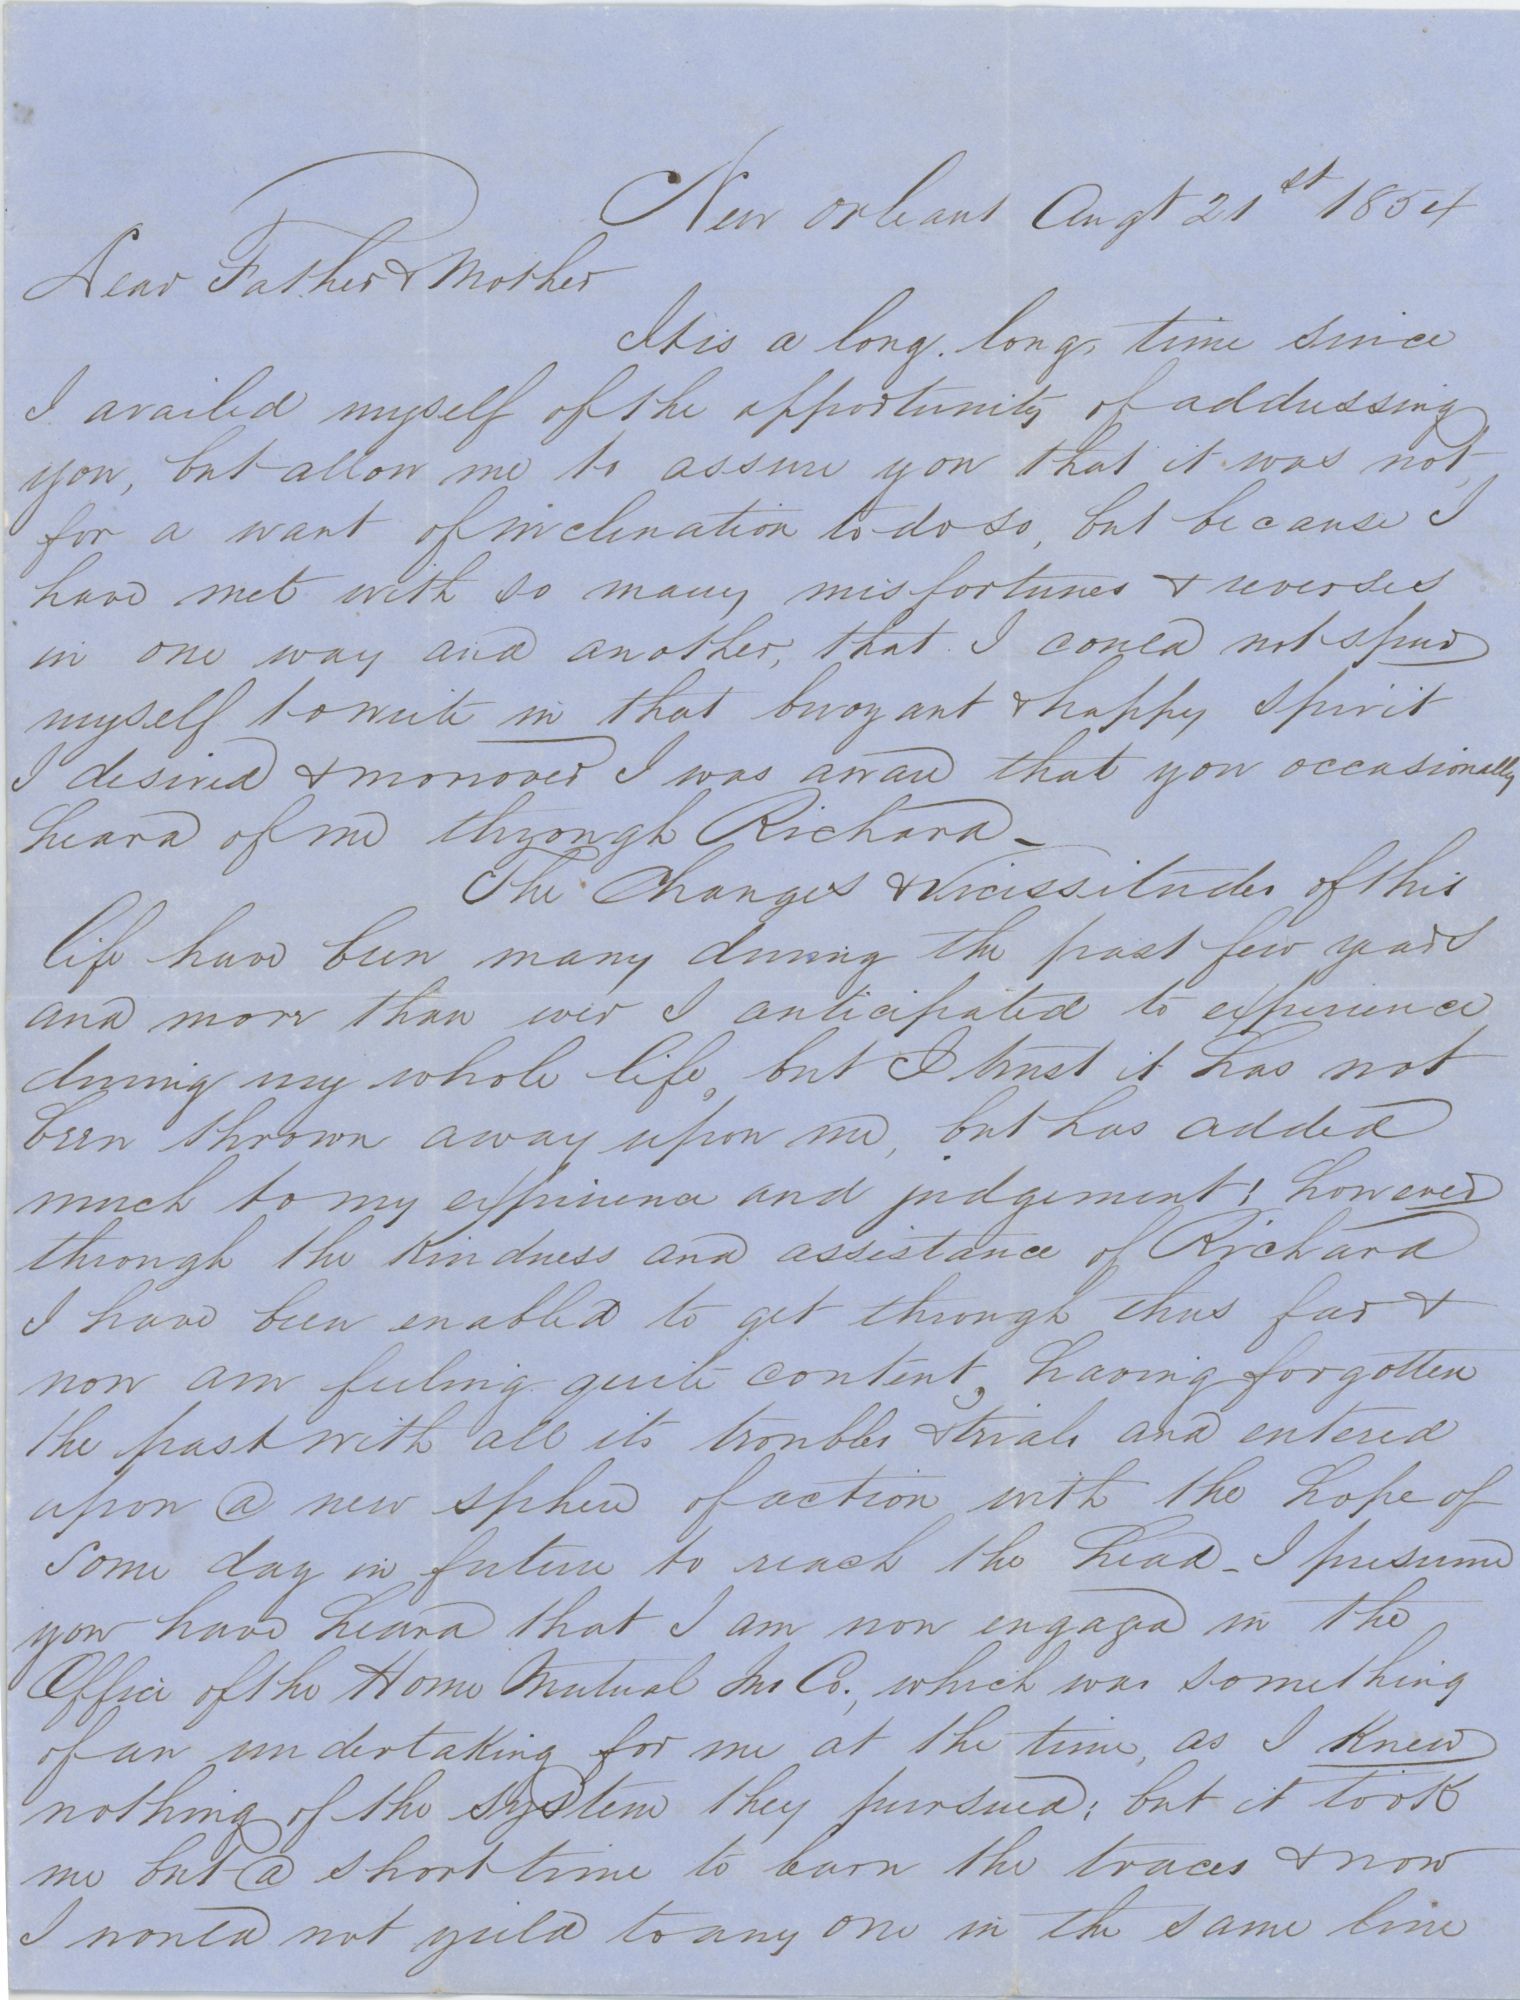 New Orleans Augt 21st 1854
Dear Father & Mother
It is a long, long, time since
I availed myself of the opportunity of addressing
you, but allow me to assure you that it was not,
for a want of inclination to do so, but because I
have met with so many misfortunes & reverses
in one way and another, that I could not spur
myself to write in that buoyant & happy spirit
I desired & moreover I was aware that you occasionally
heard of me through Richard –
The Changes & Vicissitudes of this
life have been many during the past few years
and more than ever I anticipated to experience
during my whole life, but I trust it has not
been thrown away upon me, but has added
much to my experience and judgement; however
through the kindness and assistance of Richard
I have been enabled to get through thus far &
now am feeling quite content, having forgotten
the past with all its troubles & trials and entered
upon a new sphere of action with the hope of
some day in future to reach the head – I presume
you have heard that I am now engaged in the
Office of the Home Mutual Ins Co., which was something
of an undertaking for me at the time, as I knew
nothing of the system they pursued; but it took
me but a short time to learn the traces & now
I would not yield to any one in the same line